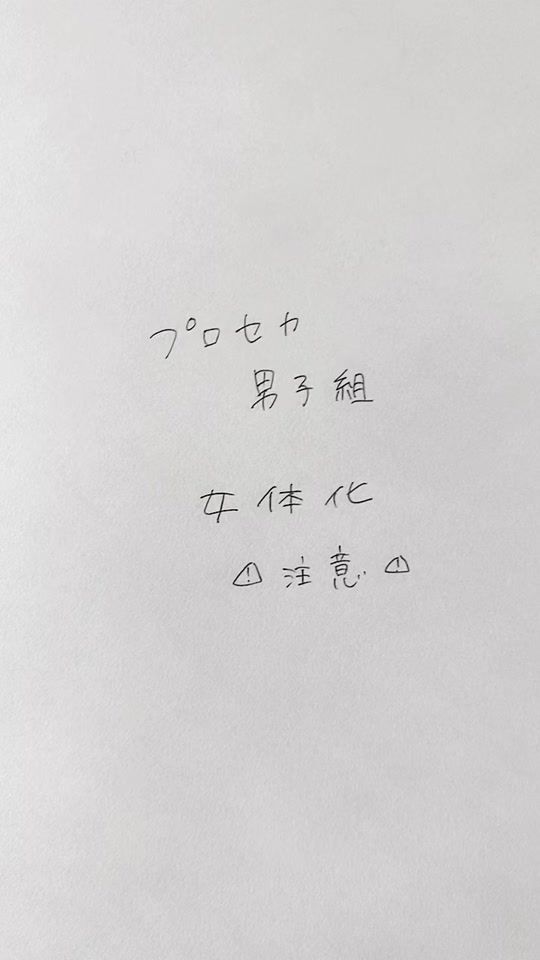 プロセカ
男子組
女体化
⚠注意⚠